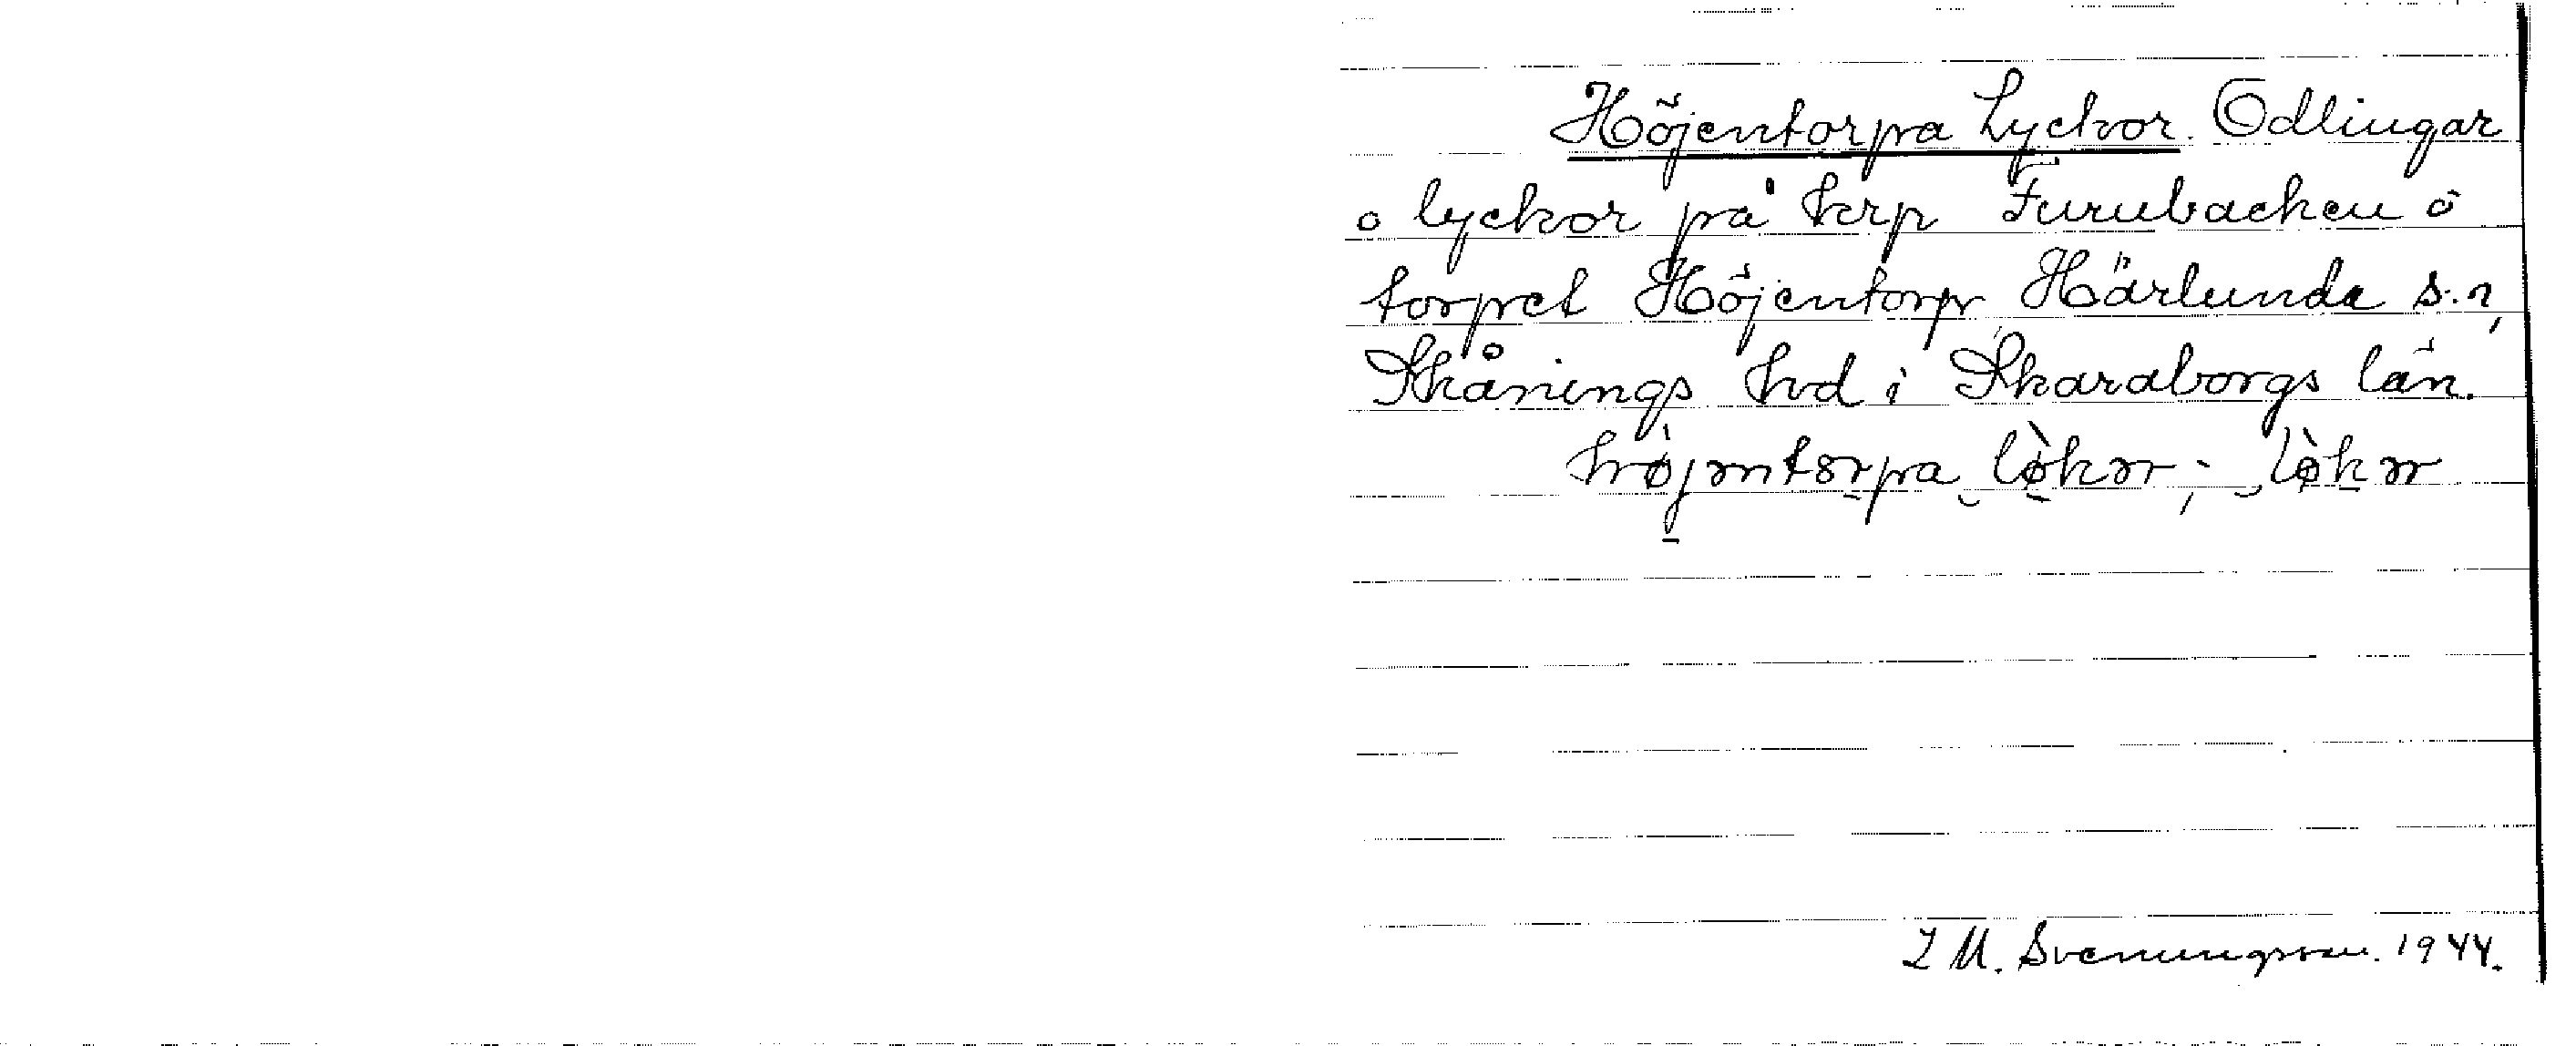 Höjentorpa Lyckor. Odlingar
o lyckor på krp Furubacken o
torpet Höjentorp Härlunda s:n,
Skånings hd i Skaraborgs län.
hø̀jəntorpa lø̀kər; lø̀kər
I M. Svenungsson. 1944.